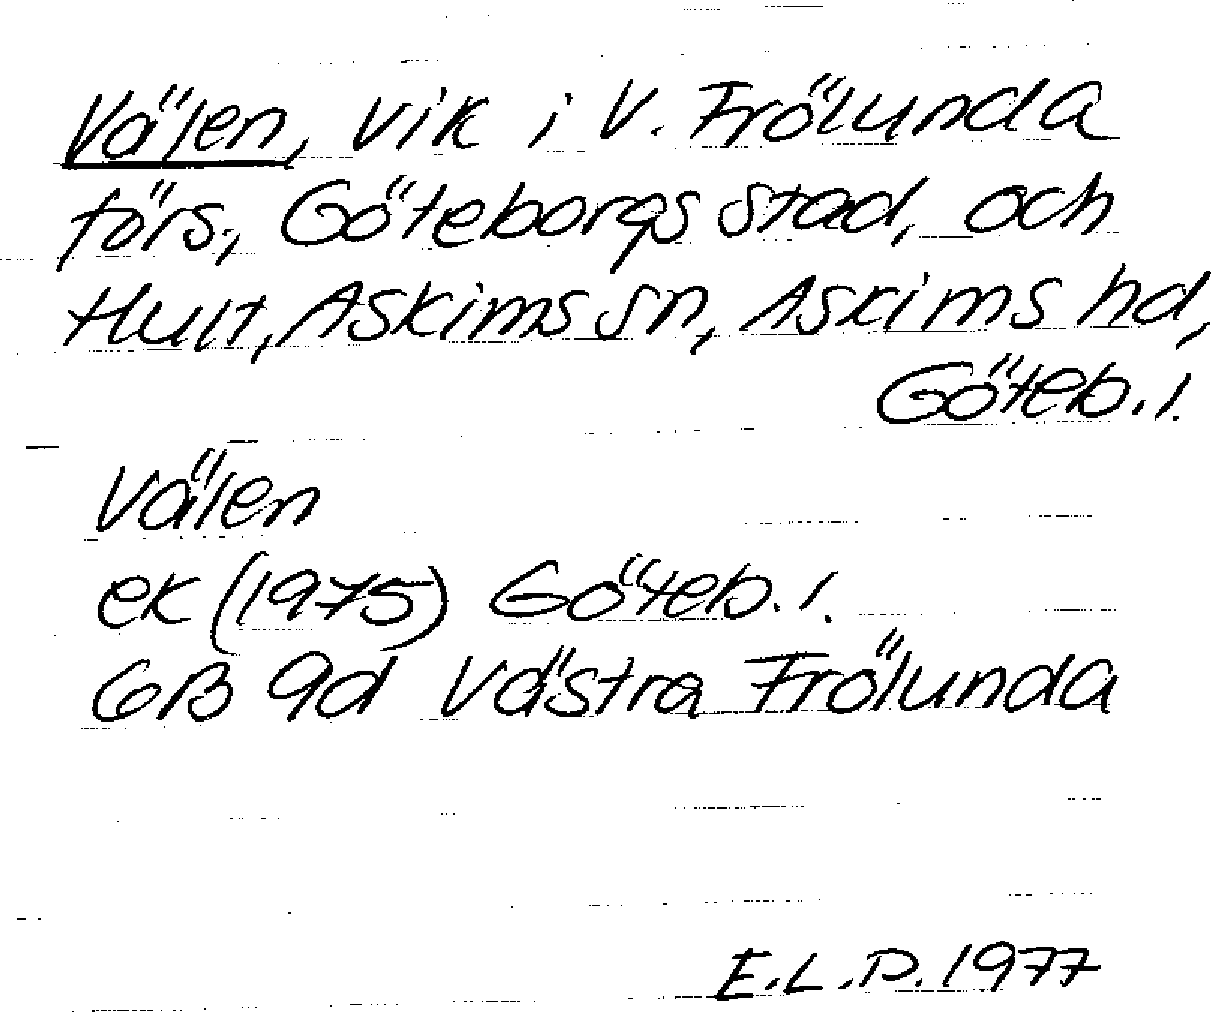 Välen, vik i V. Frölunda
förs., Göteborgs stad, och
Hult, Askims sn, Askims hd,
Göteb. l.
Välen
ek (1975) Göteb. l.
6B 9d Västra Frölunda
E.L.P. 1977